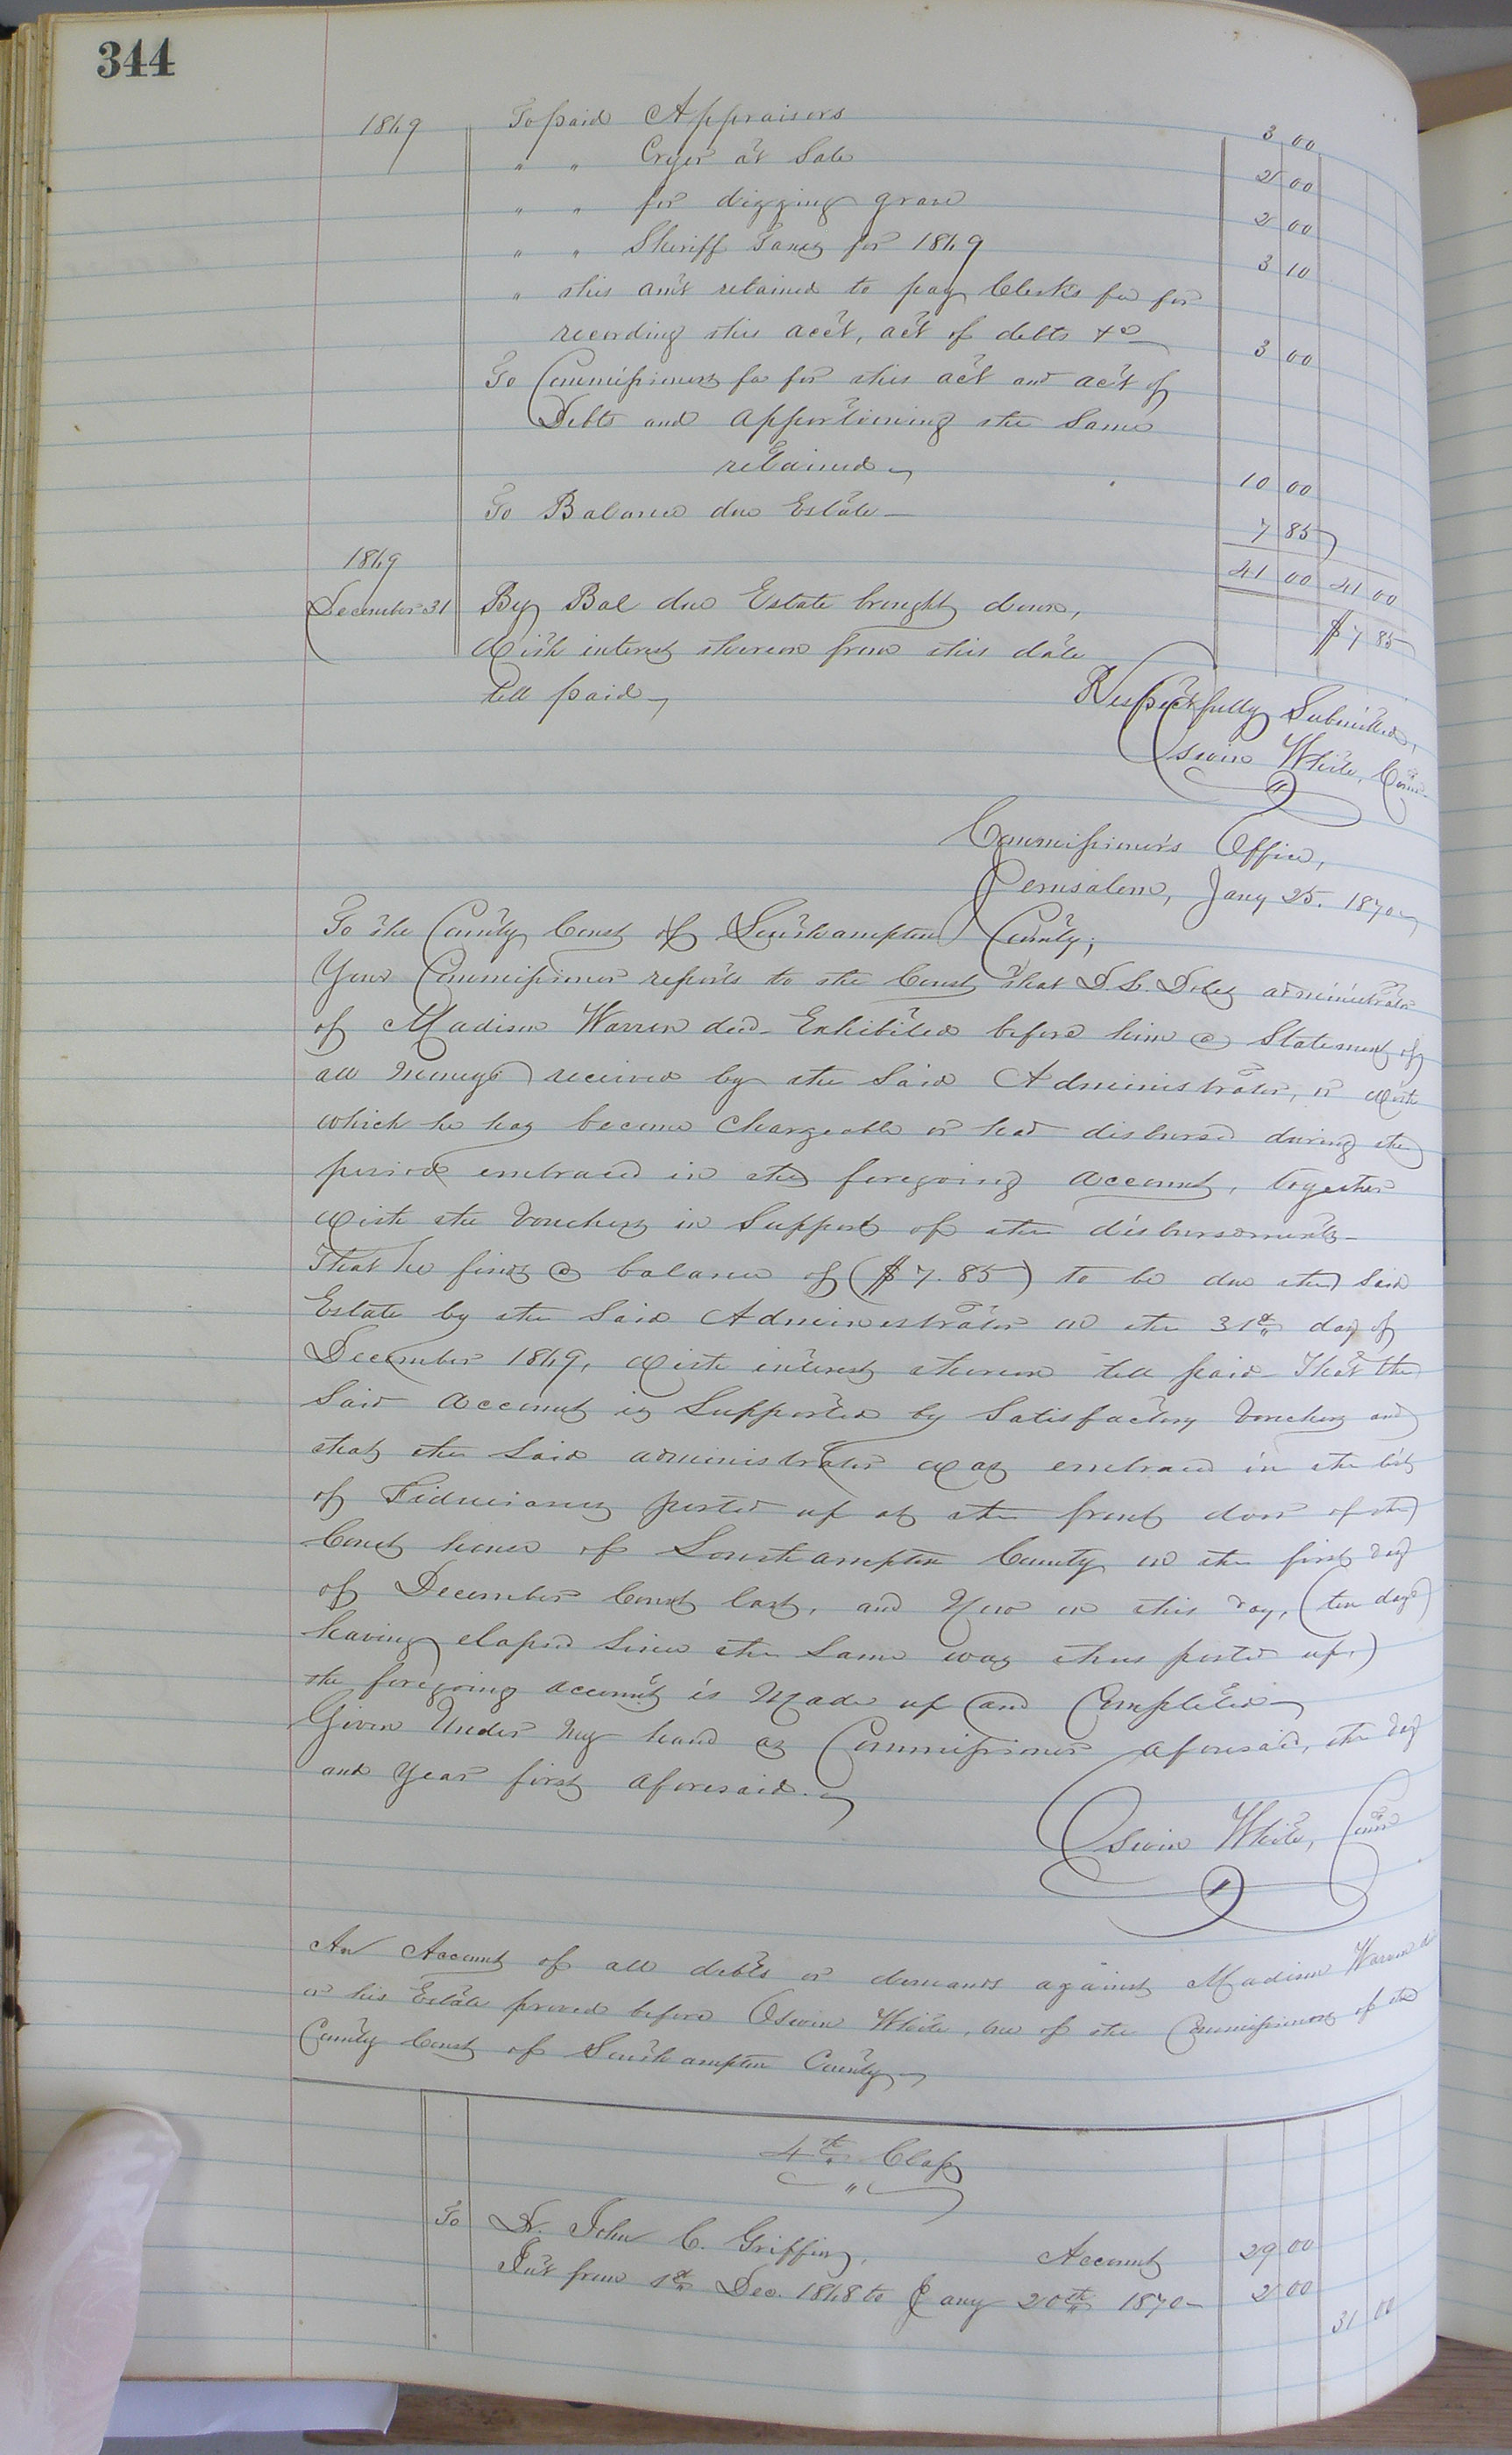 344
1869 To paid Appraisors 3 00
" " Cryer at Sale 2 00
" " for digging grave 2 00
" " Sheriff Taxes for 1869 3 10
" this am't retained to pay Clerks fee for
recording this acc't, ac't of debts &c 3 00
To Commissioners fee for this ac't and ac't of
Debts and apportioning the Same
retained 10 00
To Balance due Estate 7 85
1869 41 00 41 00
December 31 By Bal due Estate brought down, $7 85
with interest thereon from this date
till paid
Respectfully Submitted,
Oswin White, Comr
Commissioner's Office,
Jerusalem, Jany 25. 1870
To the County Court of Southampton County;
Your Commissioner reports to the Court that administrator
of Madison Warren decd Exhibited before him a Statement of
all Moneys received by the Said Administrator, or with
which he has become Chargeable or had disbursed during the
period embraced in the foregoing account, together
with the Vouchers in Support of the disbursements
That he finds a balance of ($7.85) to be due the said
Estate by the Said Administrator on the 31st day of
December 1869, with interest thereon till paid That the
Said account is Supported by Satisfactory Vouchers and
that the Said administrator was embraced in the list
of Fiduciaries posted up at the front door of the
Court house of Southampton County on the first day
of December Court last, and Now on this day, (ten days
having elapsed Since the Same was thus posted up,)
the foregoing account is Made up and Completed
Given Under My hand as Commissioner aforesaid, the day
and Year first aforesaid.
Oswin White, Comr
An Account of all debts or demands against Madison Warren d
or his Estate proved before Oswin White, one of the Commissioners of the
County Court of Southampton County
4th Class
To Dr. John C. Griffin, Account 29 00
Int from 1st Dec. 1868 to Jany 20th 1870 2 00
31 00